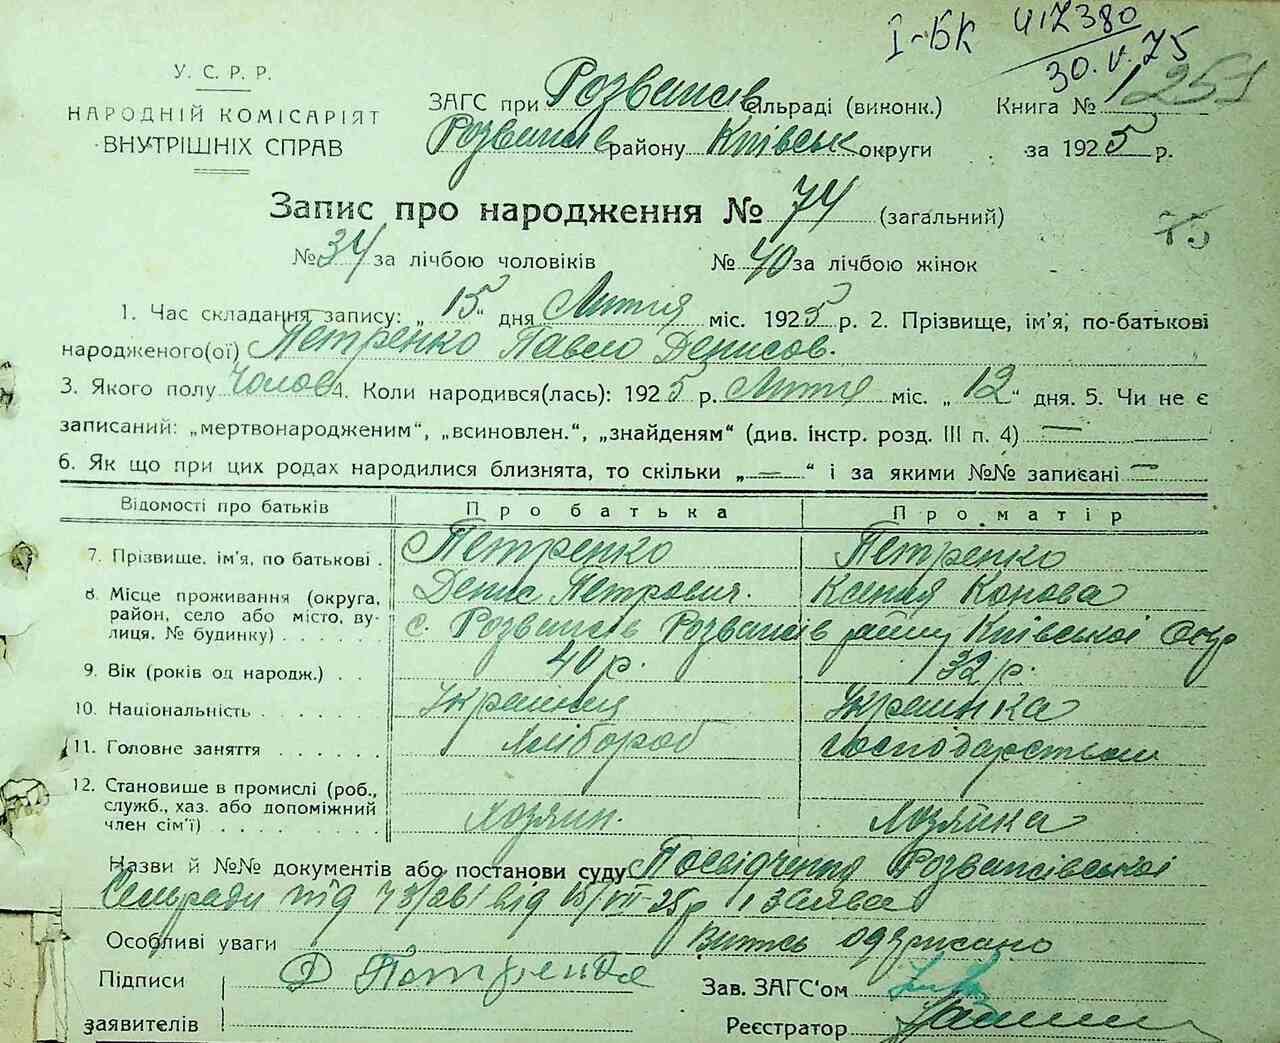 І-БК
30.V.75
251
У. С. Р. Р.
НАРОДНІЙ КОМІСАРІЯТ
ВНУТРІШНІХ СПРАВ
ЗАГС при Розважів сільраді (виконк.) Книга № 1
Розважів району Київськ округи за 1925 р.
Запис про народження № 74 (загальний)
75
№ 34 за лічбою чоловіків № 40 за лічбою жінок
1. Час складання запису: „15“ дня Лютня міс. 1925 р. 2. Прізвище, ім'я, по-батькові
народженого(ої) Петренко Павло Денисов.
3. Якого полу Чолов 4. Коли народився(лась): 1925 р. Лютня міс. „12“ дня. 5. Чи не є
записаний: „мертвонародженим“, „всиновлен.“, „знайденям“ (див. інстр. розд. III п. 4) —
6. Як що при цих родах народилися близнята, то скільки „—“ і за якими №№ записані —
Відомості про батьків Про батька Про матір
7. Прізвище, ім'я, по батькові . Петренко Петренко
Денис Петрович. Ксения
8. Місце проживання (округа,
район, село або місто, ву-
лиця, № будинку) . . . . . с. Розважів Розважів Київської Окр
9. Вік (років од народж.) . . 40 р. 32 р.
10. Національність . . . . . . Украинец Украинка
11. Головне заняття . . . . . . Хлібороб
12. Становище в промислі (роб.,
служб., хаз. або допоміжний
член сім'ї) . . . . . . . . Хозяин. Хозяйка
Назви й №№ документів або постанови суду Посвідчення Розважівської
Сельради під від і Заява
Особливі уваги Витяг одержано
Підписи Д Петренко Зав. ЗАГС'ом
заявителів Реєстратор